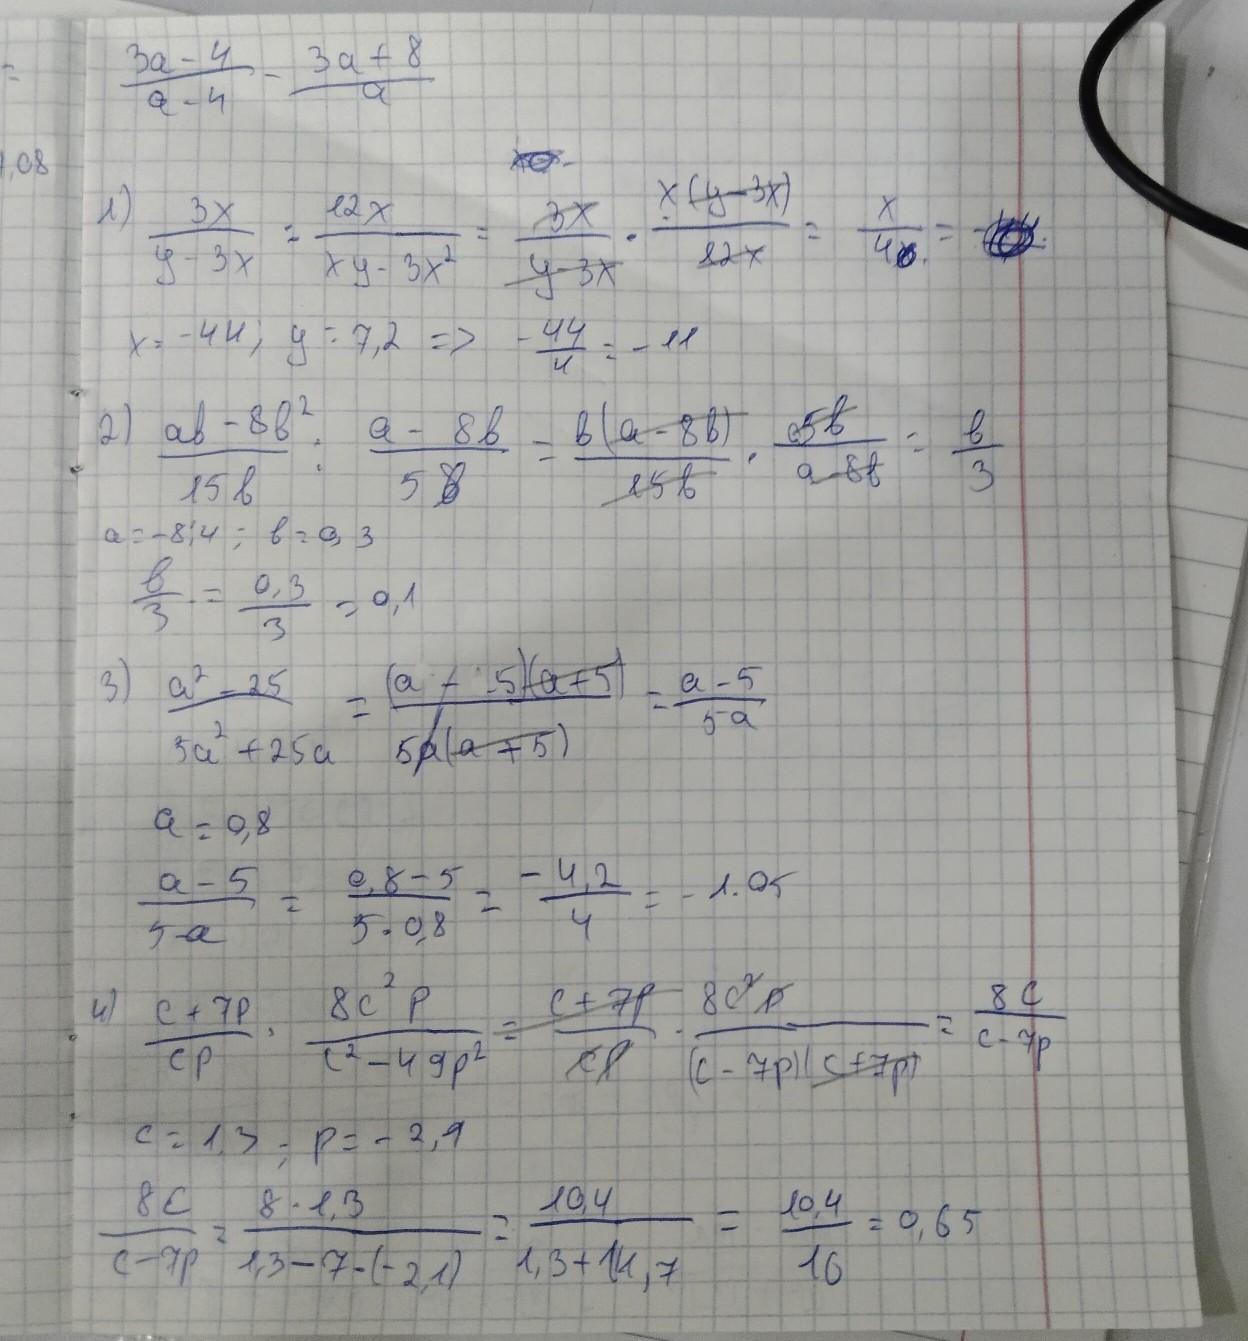 (3a - 4)/(a - 4) - (3a + 8)/a
1,08
1) 3x/(y - 3x) : 12x/(xy - 3x²) = 3x/(y - 3x) · x(y - 3x)/12x = x/4 =
x = -44; y = 7,2 => -44/4 = -11
2) (ab - 8b²)/15b : (a - 8b)/5b = b(a - 8b)/15b · 5b/(a - 8b) = b/3
a = -8,4; b = 0,3
b/3 = 0,3/3 = 0,1
3) (a² - 25)/(5a² + 25a) = (a - 5)(a + 5)/5a(a + 5) = (a - 5)/5a
a = 0,8
(a - 5)/5a = (0,8 - 5)/(5 · 0,8) = -4,2/4 = -1.05
4) (c + 7p)/cp · 8c²p/(c² - 49p²) = (c + 7p)/cp · 8c²p/(c - 7p)(c + 7p) = 8c/(c - 7p)
c = 1,3; p = -2,1
8c/(c - 7p) = 8 · 1,3/(1,3 - 7 · (-2,1)) = 10,4/(1,3 + 14,7) = 10,4/16 = 0,65